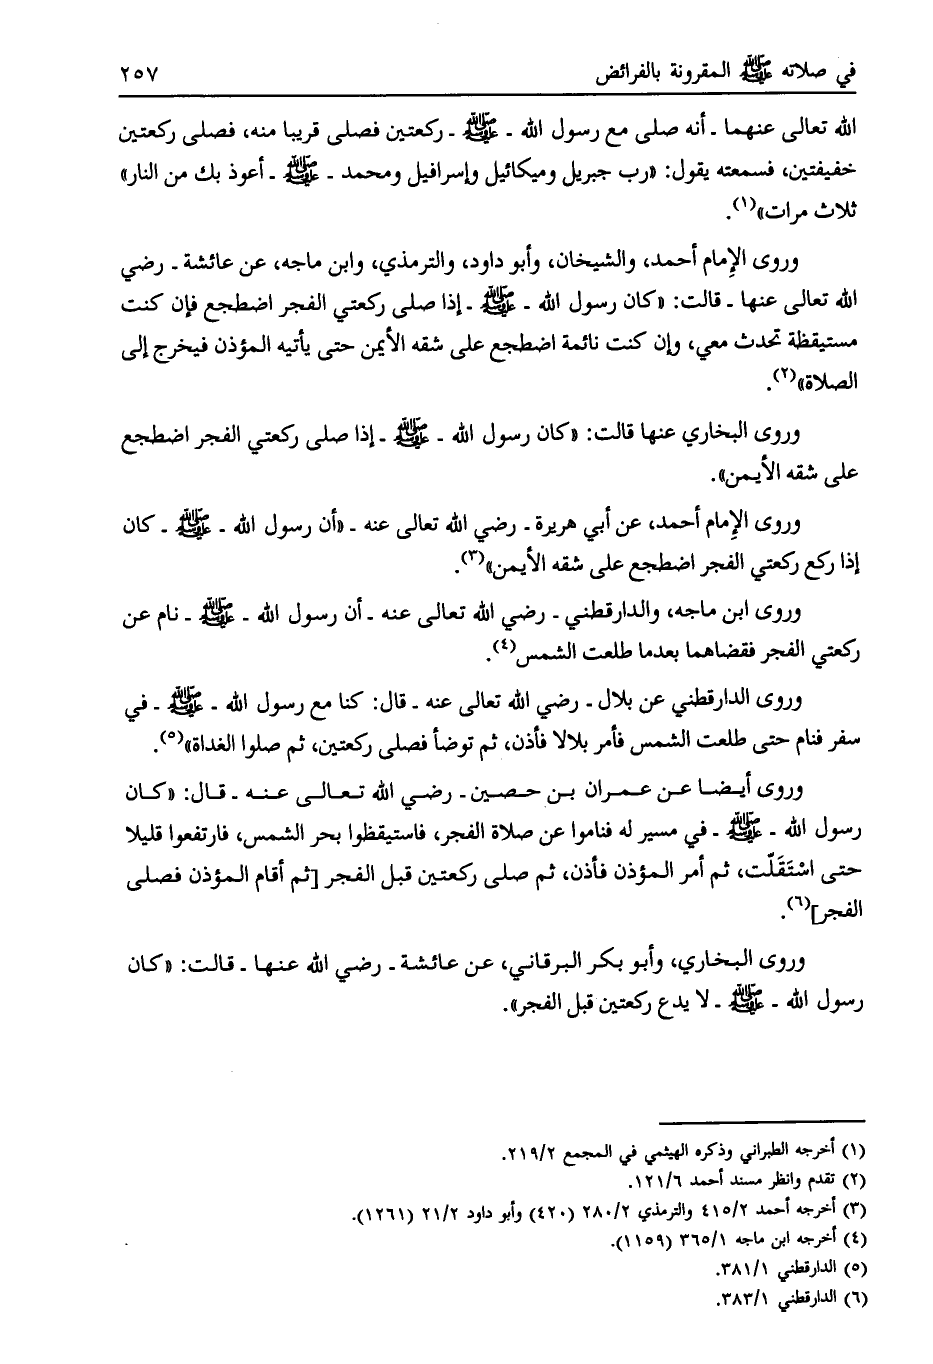 في صلاته ﷺ المقرونة بالفرائض ٢٥٧
الله تعالى عنهما ـ أنه صلى مع رسول الله ـ ﷺ ـ ركعتين فصلى قريبا منه، فصلى ركعتين
خفيفتين، فسمعته يقول: «رب جبريل وميكائيل وإسرافيل ومحمد ـ ﷺ ـ أعوذ بك من النار»
ثلاث مرات»(١).
وروى الإمام أحمد، والشيخان، وأبو داود، والترمذي، وابن ماجه، عن عائشة ـ رضي
الله تعالى عنها ـ قالت: «كان رسول الله ـ ﷺ ـ إذا صلى ركعتي الفجر اضطجع فإن كنت
مستيقظة تحدث معي، وإن كنت نائمة اضطجع على شقه الأيمن حتى يأتيه المؤذن فيخرج إلى
الصلاة»(٢).
وروى البخاري عنها قالت: «كان رسول الله ـ ﷺ ـ إذا صلى ركعتي الفجر اضطجع
على شقه الأيمن».
وروى الإمام أحمد، عن أبي هريرة ـ رضي الله تعالى عنه ـ «أن رسول الله ـ ﷺ ـ كان
إذا ركع ركعتي الفجر اضطجع على شقه الأيمن»(٣).
وروى ابن ماجه، والدارقطني ـ رضي الله تعالى عنه ـ أن رسول الله ـ ﷺ ـ نام عن
ركعتي الفجر فقضاهما بعدما طلعت الشمس(٤).
وروى الدارقطني عن بلال ـ رضي الله تعالى عنه ـ قال: كنا مع رسول الله ـ ﷺ ـ في
سفر فنام حتى طلعت الشمس فأمر بلالا فأذن، ثم توضأ فصلى ركعتين، ثم صلوا الغداة»(٥).
وروى أيضا عن عمران بن حصين ـ رضي الله تعالى عنه ـ قال: «كان
رسول الله ـ ﷺ ـ في مسير له فناموا عن صلاة الفجر، فاستيقظوا بحر الشمس، فارتفعوا قليلا
حتى اسْتَقَلّت، ثم أمر المؤذن فأذن، ثم صلى ركعتين قبل الفجر [ثم أقام المؤذن فصلى
الفجر](٦).
وروى البخاري، وأبو بكر البرقاني، عن عائشة ـ رضي الله عنها ـ قالت: «كان
رسول الله ـ ﷺ ـ لا يدع ركعتين قبل الفجر».
(١) أخرجه الطبراني وذكره الهيثمي في المجمع ٢١٩/٢.
(٢) تقدم وانظر مسند أحمد ١٢١/٦.
(٣) أخرجه أحمد ٤١٥/٢ والترمذي ٢٨٠/٢ (٤٢٠) وأبو داود ٢١/٢ (١٢٦١).
(٤) أخرجه ابن ماجه ٣٦٥/١ (١١٥٩).
(٥) الدارقطني ٣٨١/١.
(٦) الدارقطني ٣٨٣/١.